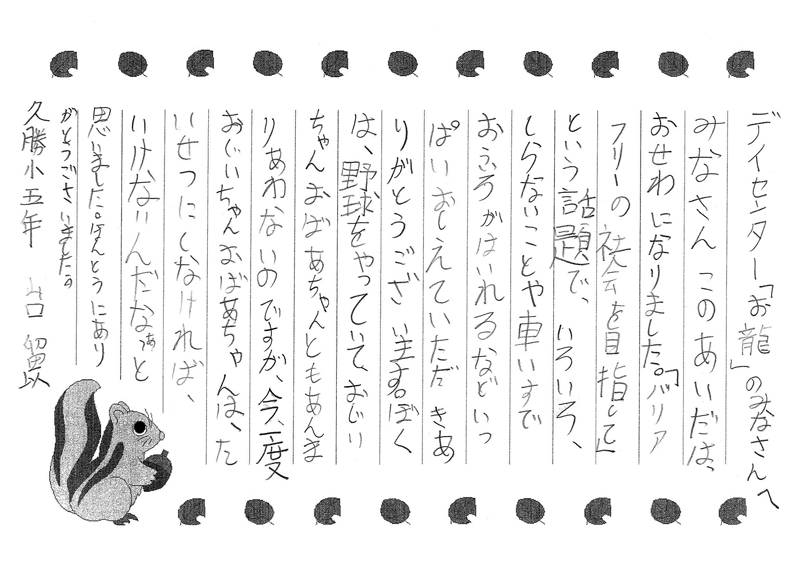 デイセンター「お龍」のみなさんへ
みなさんこのあいだは、
おせわになりました。「バリア
フリーの社会を目指して」
という話題で、いろいろ、
しらないことや車いすで
おふろがはいれるなどいっ
ぱいおしえていただきあ
りがとうございます。ぼく
は、野球をやっていて、おじい
ちゃんおばあちゃんともあんま
りあわないのですが、今一度
おじいちゃんおばあちゃんは、た
いせつにしなければ、
いけないんだなぁと
思いました。ほんとうにあり
がとうございました。
久勝小五年